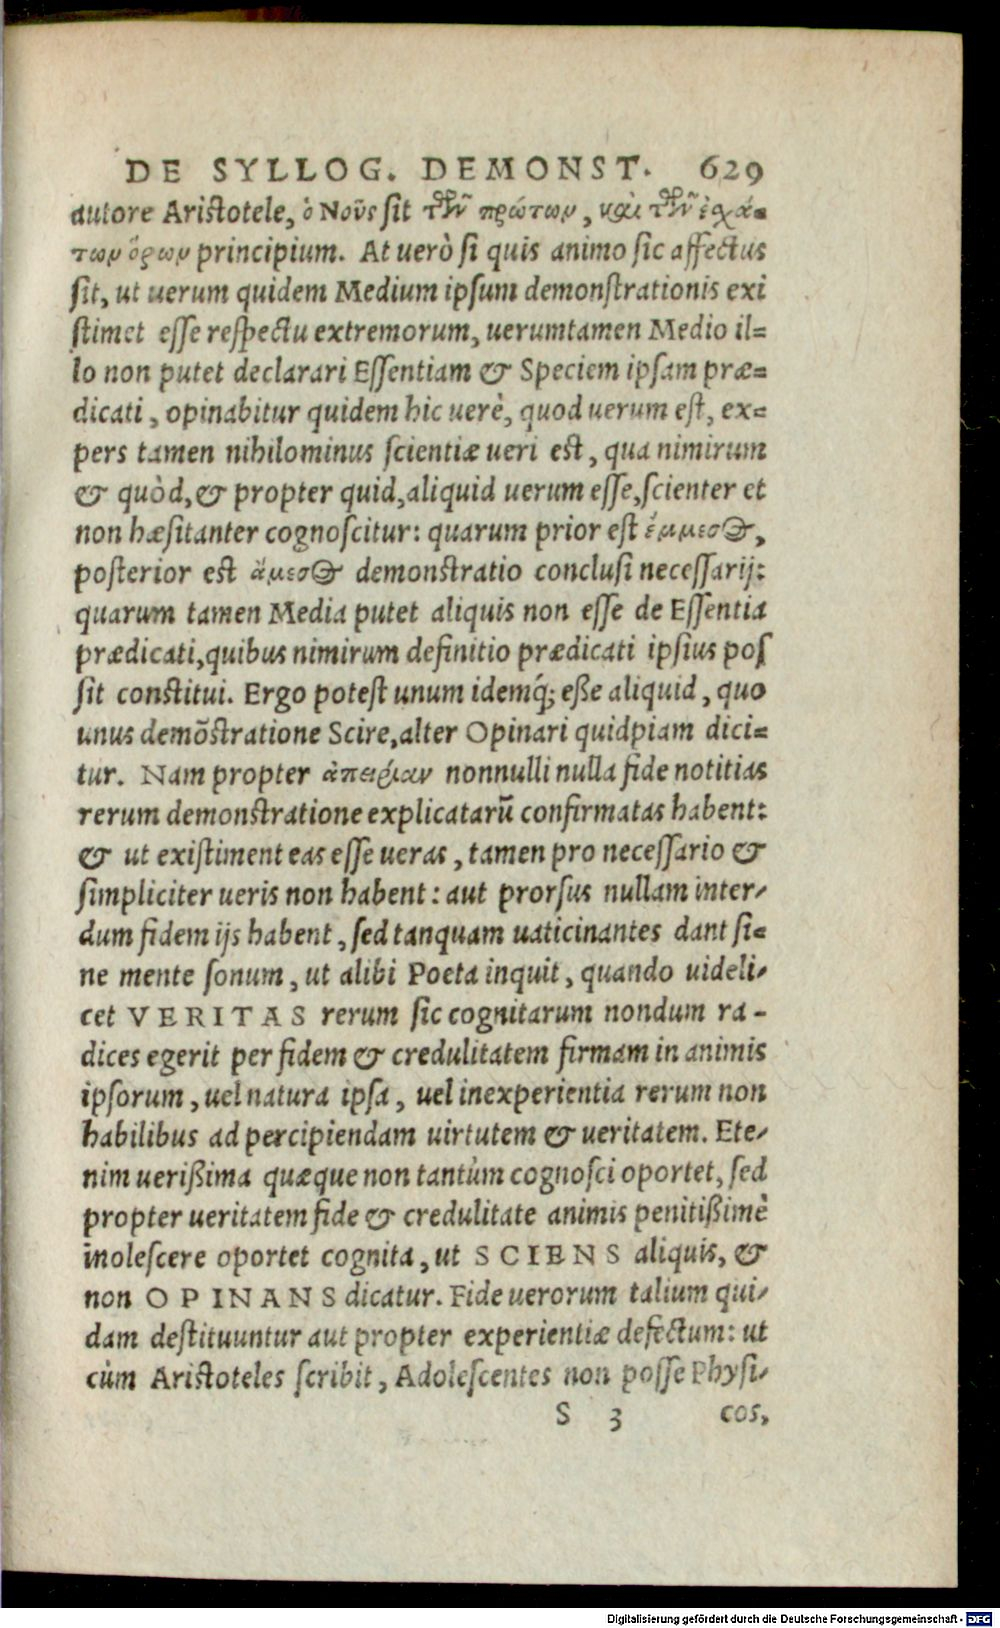 DE SYLLOG. DEMONST. 629
autore Aristotele, ὁ Νοῦς sit τῶν πρώτων, καὶ τῶν ἐχά-
των ὅρων principium. At uerò si quis animo sic affectus
sit, ut uerum quidem Medium ipsum demonstrationis exi
stimet esse respectu extremorum, uerumtamen Medio il=
lo non putet declarari Essentiam & Speciem ipsam præ=
dicati, opinabitur quidem hic uerè, quod uerum est, ex=
pers tamen nihilominus scientiæ ueri est, qua nimirum
& quòd, & propter quid, aliquid uerum esse, scienter et
non hæsitanter cognoscitur: quarum prior est ἔμμεσος,
posterior est ἄμεσος demonstratio conclusi necessarij:
quarum tamen Media putet aliquis non esse de Essentia
prædicati, quibus nimirum definitio prædicati ipsius pos
sit constitui. Ergo potest unum idemq́; eße aliquid, quo
unus demõstratione Scire, alter Opinari quidpiam dici=
tur. Nam propter ἀπειρίαν nonnulli nulla fide notitias
rerum demonstratione explicatarũ confirmatas habent:
& ut existiment eas esse ueras, tamen pro necessario &
simpliciter ueris non habent: aut prorsus nullam inter-
dum fidem ijs habent, sed tanquam uaticinantes dant si=
ne mente sonum, ut alibi Poeta inquit, quando uideli-
cet VERITAS rerum sic cognitarum nondum ra-
dices egerit per fidem & credulitatem firmam in animis
ipsorum, uel natura ipsa, uel inexperientia rerum non
habilibus ad percipiendam uirtutem & ueritatem. Ete-
nim uerißima quæque non tantùm cognosci oportet, sed
propter ueritatem fide & credulitate animis penitißimè
inolescere oportet cognita, ut SCIENS aliquis, &
non OPINANS dicatur. Fide uerorum talium qui-
dam destituuntur aut propter experientiæ defectum: ut
cùm Aristoteles scribit, Adolescentes non posse Physi-
S 3 cos,
Digitalisierung gefördert durch die Deutsche Forschungsgemeinschaft - DFG